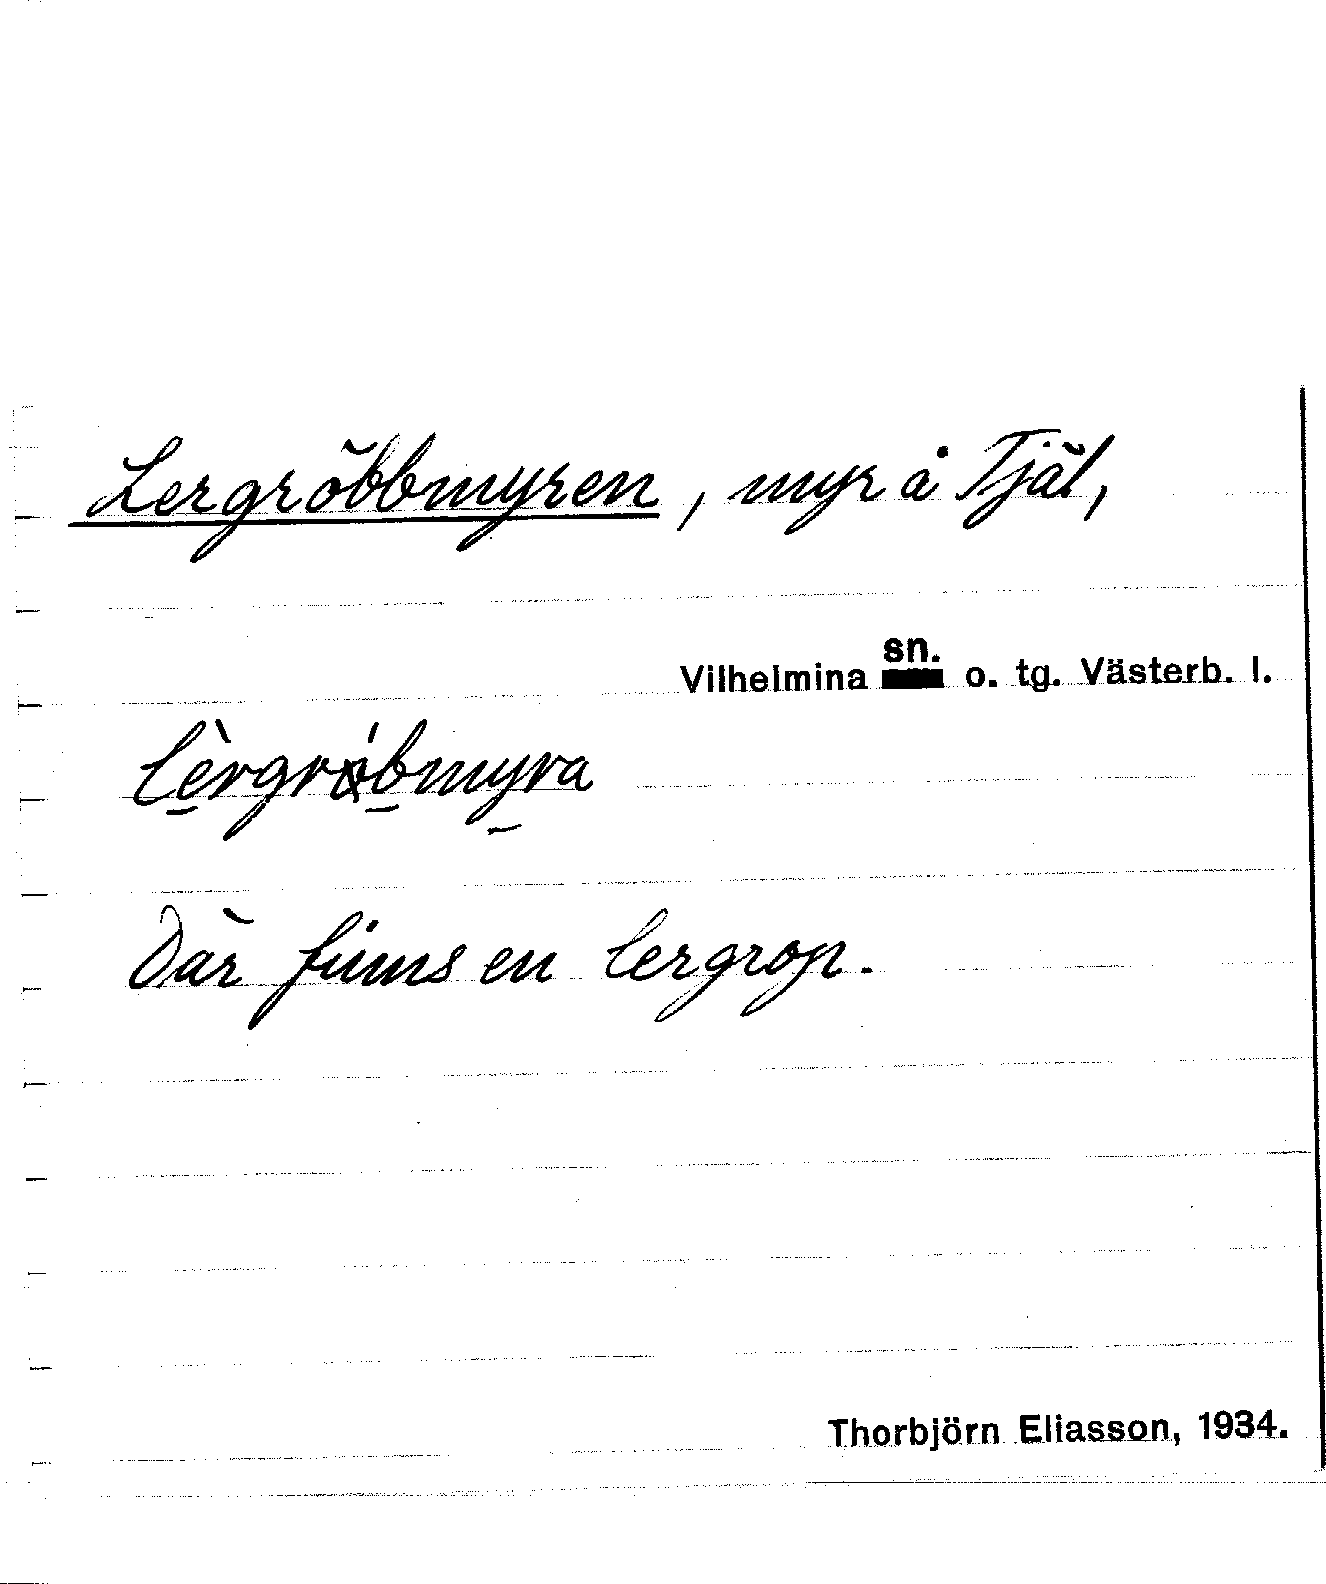 Lergröbbmyren, myr å Tjäl,
Vilhelmina sn. o. tg. Västerb. l.
Där finns en lergrop.
Thorbjörn Eliasson, 1934.